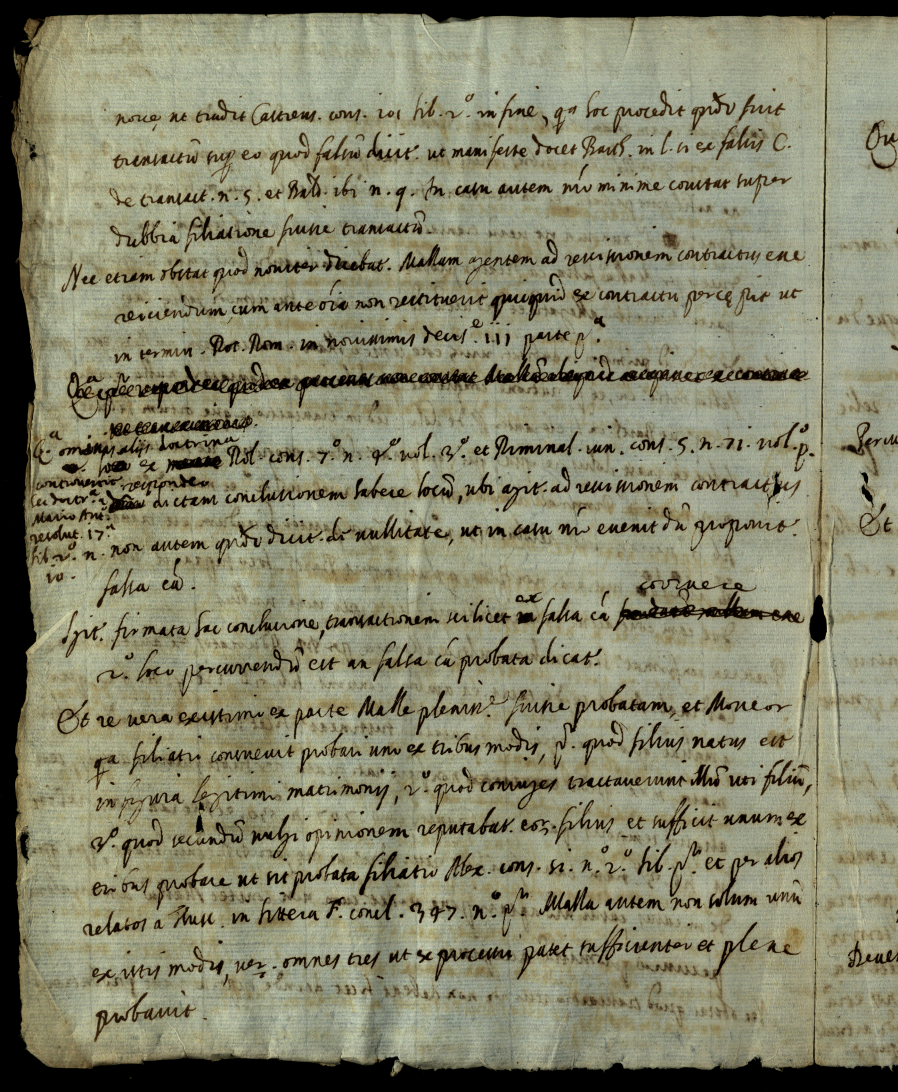 nove, ut tradit Castrens. cons. 101 lib. 2.º in fine, qª hoc procedit qñdo fuit
transactũ sup eo quod falsũ dicit.ʳ ut manifeste docet Barth. in l. si ex falsis C.
de transact. n. 5. et Bald. ibi n. 9. In casu autem nrõ minime constat super
dubbia filiatione fuisse transactũ
Nec etiam obstat quod noviter dicebat.ʳ Mallam agentem ad revisionem contractus esse
reiiciendum, cum ante oĩa non restituerit quicquid ex contractu percepit ut
in termin. Rot. Rom. in novissimis decis.ᵉ 111 parte pª.
Qª
Qª omissis alijs doctrina
ex Rol. cons. 7.º n. 4.º vol. 3.º et Riminal. iun. cons. 5. n. 71. vol.º p.º
respondeo
Mario Ant.º
resolut. 17.ª
lib. 2.º n.
10.
dictam conclusionem habere locũ, ubi agit.ʳ ad revisionem contractus
non autem qñdo dicit.ʳ de nullitate, ut in casu nrõ evenit dũ proponit.ʳ
falsa cã.
Igit.ʳ firmata hac conclusione, transactionem scilicet ex falsa cã corruere
2.º loco percurrendũ est an falsa cã probata dicat.ʳ
Et re vera existimo ex parte Malle pleniss.ᵉ fuisse probatam, et Moveor
qª filiatio consuevit probari uno ex tribus modis, pº. quod filius natus est
in figura legitimi matrimonij, 2.º quod coniuges tractaverunt illũ uti filiũ,
3.º quod secundũ vulgi opinionem reputabat.ʳ eoꝝ filius et sufficit unum ex
tribus probare ut sit probata filiatio Alex. cons. 51. n.º 2.º lib. pº. et per alios
relatos a Thusc. in littera F. concl. 347. n.º pº. Malla autem non solum unũ
ex istis modis, veꝝ. omnes tres ut ex processu patet sufficienter et plene
probavit.